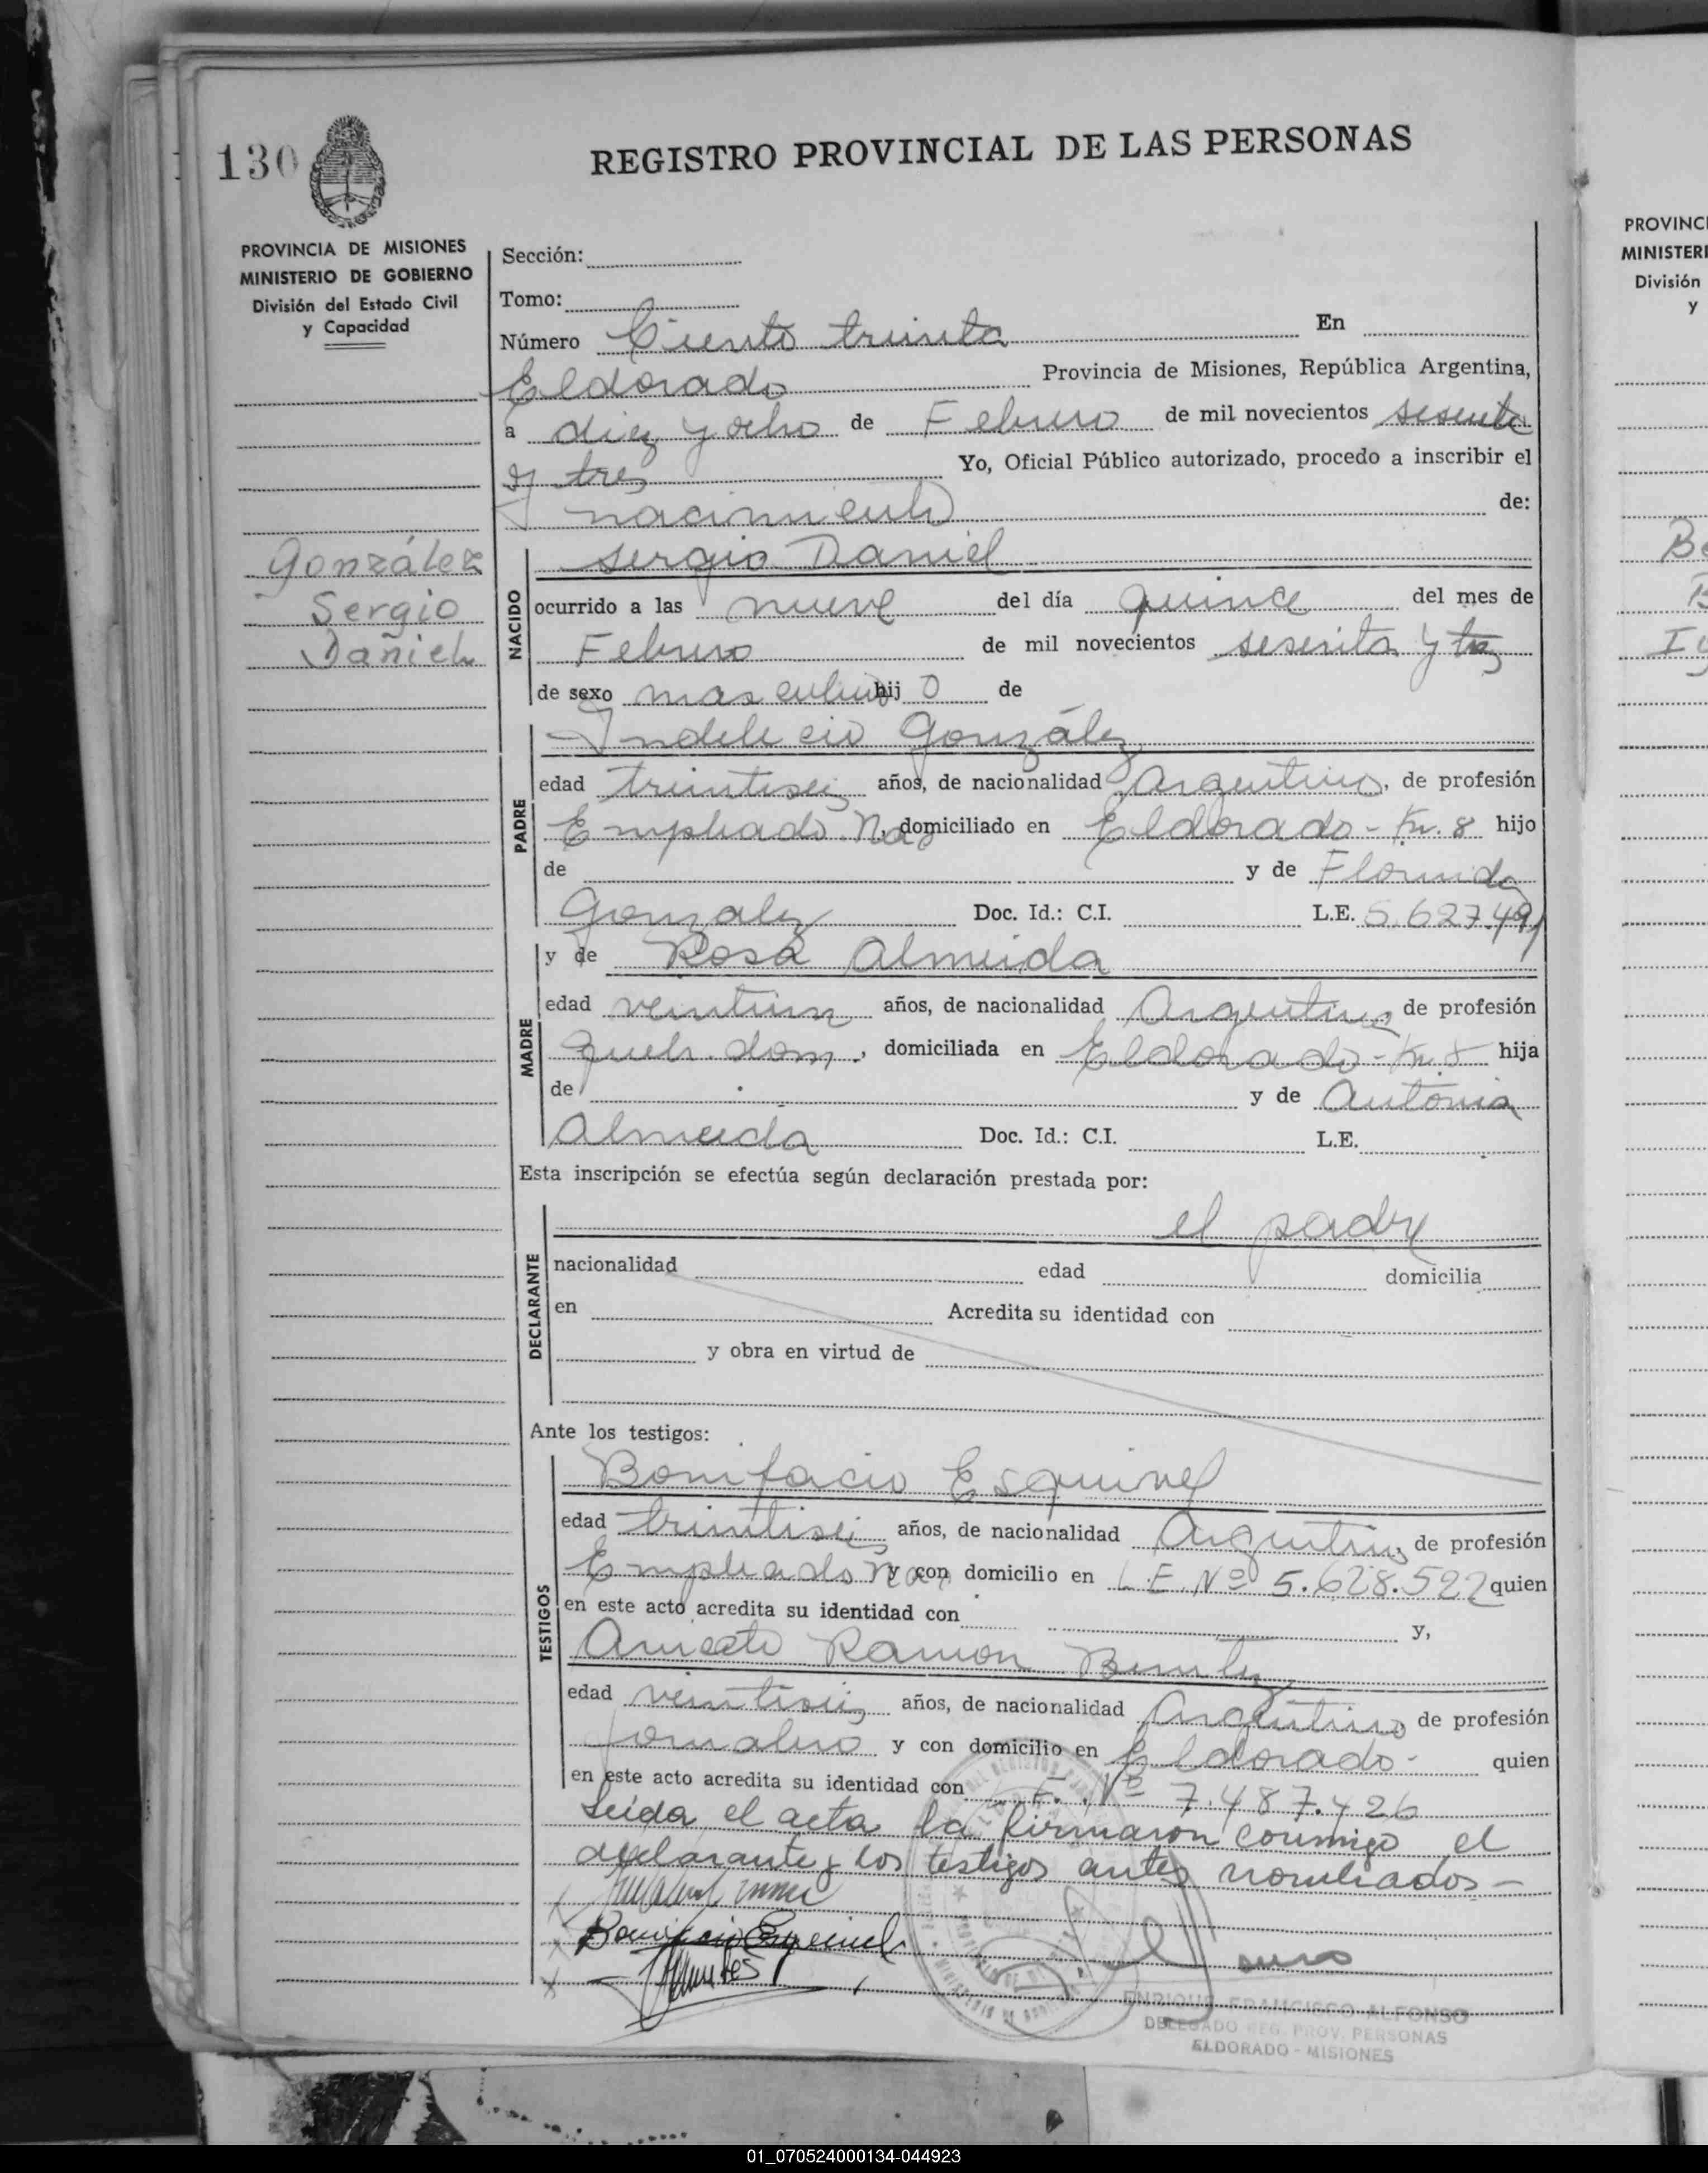 130
REGISTRO PROVINCIAL DE LAS PERSONAS
PROVINCIA DE MISIONES
MINISTERIO DE GOBIERNO
División del Estado Civil
y Capacidad
Sección:
Tomo:
Número Ciento treinta En
Eldorado Provincia de Misiones, República Argentina,
a diez y ocho de Febrero de mil novecientos sesenta
y tres Yo, Oficial Público autorizado, procedo a inscribir el
nacimiento de:
González
Sergio
Daniel
NACIDO
Sergio Daniel
ocurrido a las nueve del día quince del mes de
Febrero de mil novecientos sesenta y tres
de sexo masculino hij o de
PADRE
Indelecio González
edad treintiseis años, de nacionalidad Argentino, de profesión
Empleado Nac, domiciliado en Eldorado - Km. 8 hijo
de y de Florinda
Gonzalez Doc. Id.: C.I. L.E. 5.627.491
MADRE
y de Rosa Almeida
edad veintiun años, de nacionalidad Argentina de profesión
queh. dom., domiciliada en Eldorado - Km. 8 hija
de y de Antonia
Almeida Doc. Id.: C.I. L.E.
Esta inscripción se efectúa según declaración prestada por:
DECLARANTE
el padre
nacionalidad edad domicilia
en Acredita su identidad con
y obra en virtud de
Ante los testigos:
TESTIGOS
Bonifacio Esquivel
edad treintiseis años, de nacionalidad Argentino, de profesión
Empleado Nac y con domicilio en L.E. Nº 5.628.522 quien
en este acto acredita su identidad con y,
Aniceto Ramon Benitez
edad veintiseis años, de nacionalidad Argentino de profesión
Jornalero y con domicilio en Eldorado - quien
en este acto acredita su identidad con L.E. Nº 7.487.426
Leida el acta la firmaron conmigo el
declarante y los testigos antes nombrados -
Bonifacio Esquivel
ENRIQUE FRANCISCO ALFONSO
DELEGADO REG. PROV. PERSONAS
ELDORADO - MISIONES
PROVINC
MINISTERI
División
y
01_070524000134-044923